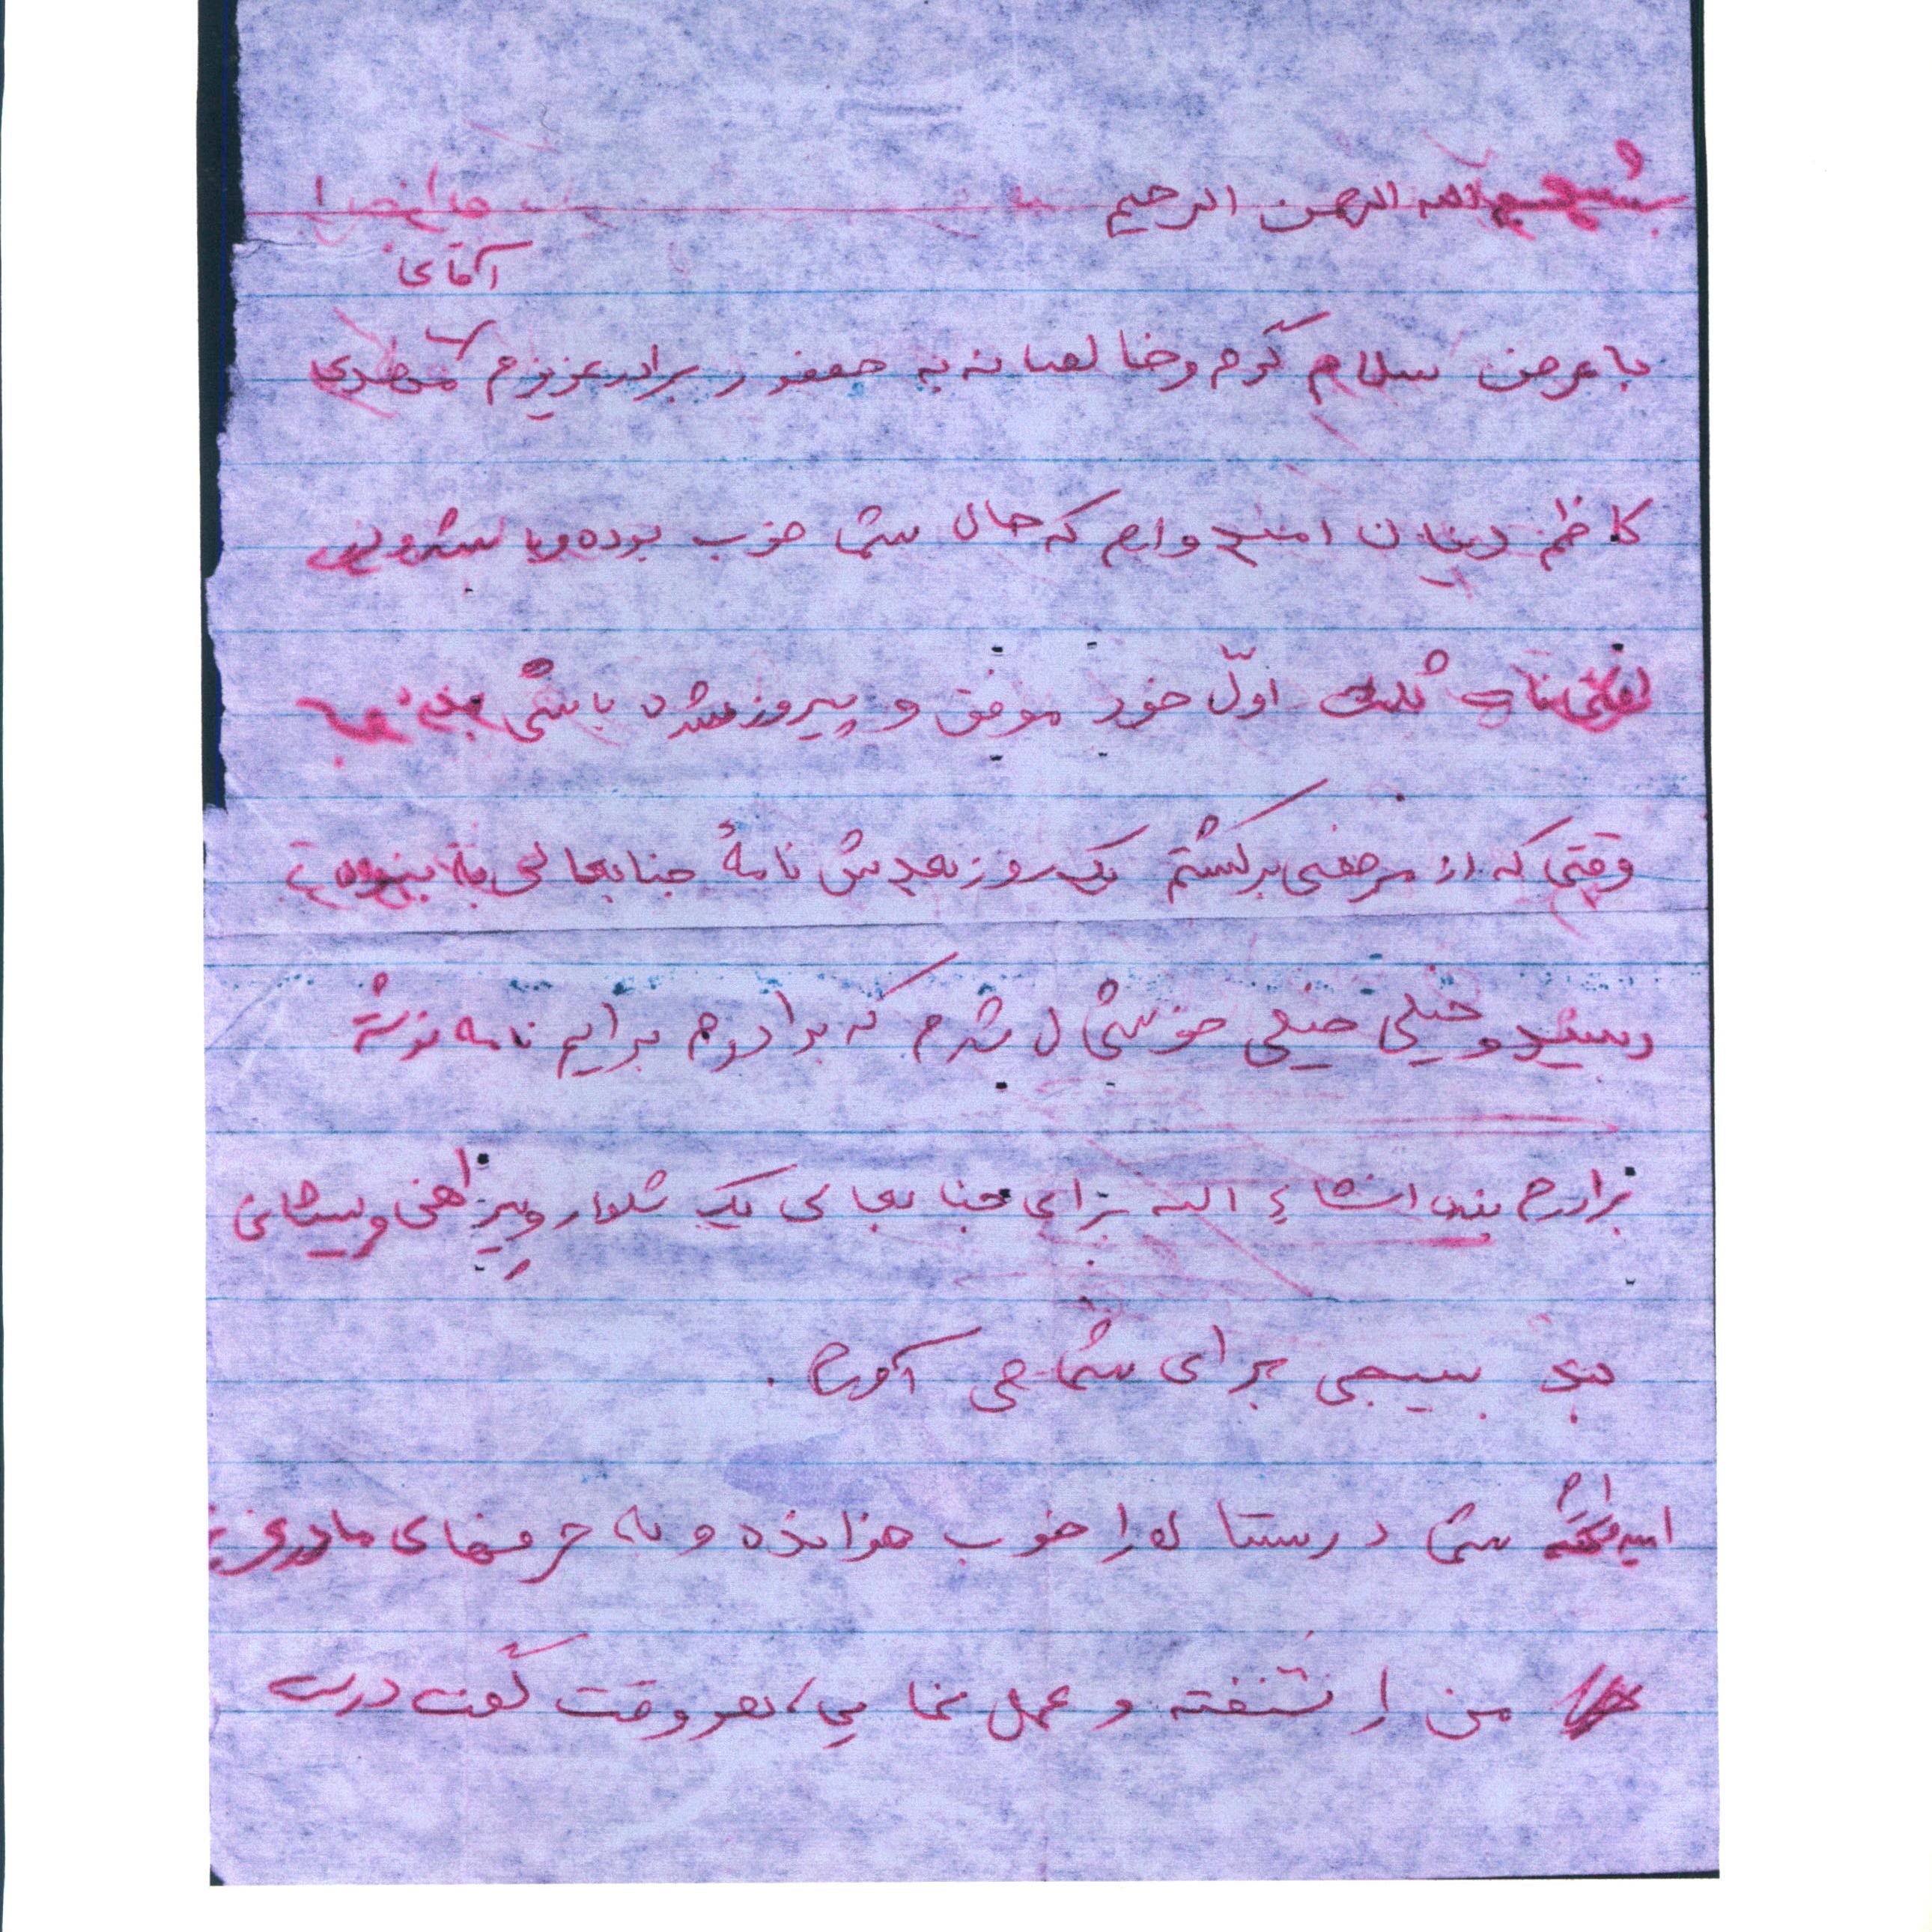 بسم الله الرحمن الرحیم
آقای
با عرض سلام گرم و خالصانه به حضور برادر عزیزم
کاظم دینان امیدوارم که حال شما خوب بوده و با
ثلث اول خود موفق و پیروز شده باشی
وقتی که از مرخصی برگشتم یک روز بعدش نامهٔ جنابعالی به بنده
رسید و خیلی خیلی خوشحال شدم که برادرم برایم نامه نوشته
برادرم بنده انشاء الله برای جنابعالی یک شلوار و پیراهنی و پیشانی
بند بسیجی برای شما می آورم.
امیدوارم شما درستان را خوب خوانده و به حرفهای مادر عزیز
من را شنفته و عمل نمایی، هر وقت گفت درست